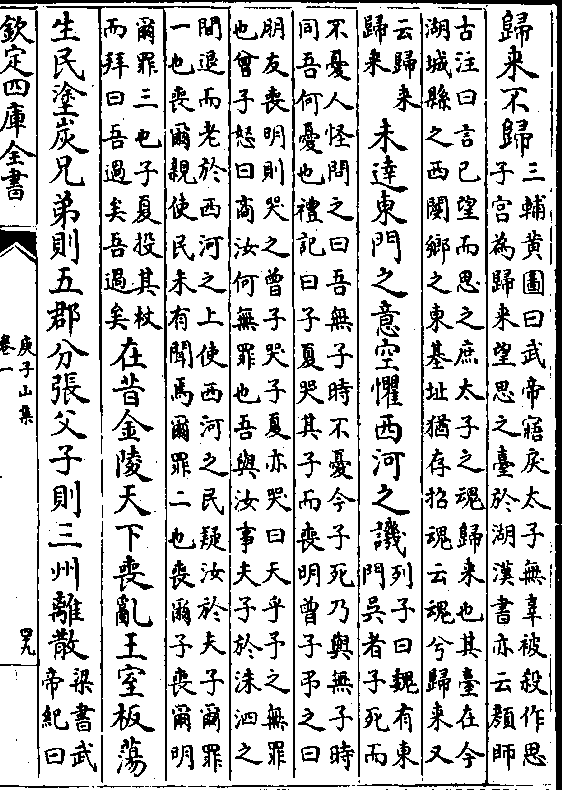 歸来不歸
三輔黄圖曰武帝寤戾太子無辜被殺作思
子宫為歸来望思之臺於湖漢書亦云顔師
古注曰言己望而思之庶太子之魂歸来也其臺在今
湖城縣之西閿鄉之東基址猶存招魂云魂兮歸来又
云歸来
歸来
未達東門之意空懼西河之譏
列子曰魏有東
門吳者子死而
不憂人怪問之曰吾無子時不憂今子死乃與無子時
同吾何憂也禮記曰子夏哭其子而喪明曾子弔之曰
朋友喪明則哭之曾子哭子夏亦哭曰天乎予之無罪
也曾子怒曰商汝何無罪也吾與汝事夫子於洙泗之
間退而老於西河之上使西河之民疑汝於夫子爾罪
一也喪爾親使民未有聞焉爾罪二也喪爾子喪爾明
爾罪三也子夏投其杖
而拜曰吾過矣吾過矣
在昔金陵天下喪亂王室板蕩
生民塗炭兄弟則五郡分張父子則三州離散
梁書武
帝紀曰
欽定四庫全書
庾子山集
卷一
四九